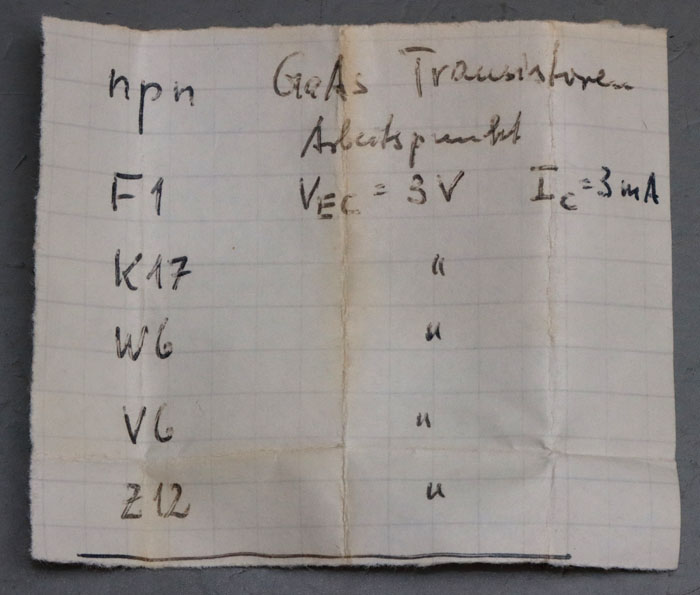 npn GaAs Transistoren
Arbeitspunkt
F1 VEC = 3V IC = 3mA
K17 "
W6 "
V6 "
Z12 "